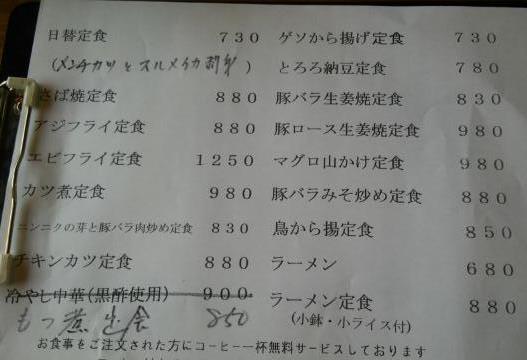 日替定食 730
(メンチカツとスルメイカ刺身)
さば焼定食 880
アジフライ定食 880
エビフライ定食 1250
カツ煮定食 980
ニンニクの芽と豚バラ肉炒め定食 830
チキンカツ定食 880
冷やし中華(黒酢使用) 900
もつ煮定食 850
ゲソから揚げ定食 730
とろろ納豆定食 780
豚バラ生姜焼定食 830
豚ロース生姜焼定食 980
マグロ山かけ定食 980
豚バラみそ炒め定食 880
鳥から揚定食 850
ラーメン 680
ラーメン定食 880
(小鉢・小ライス付)
お食事をご注文された方にコーヒー一杯無料サービスしております